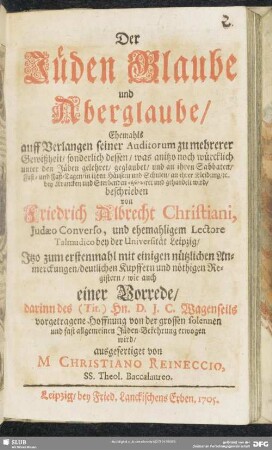 Der
Jüden Glaube
und
Aberglaube/
Ehemahls
auff Verlangen seiner Auditorum zu mehrerer
Gewißheit/ sonderlich dessen/ was anitzo noch würcklich
unter den Jüden gelehret/ geglaubet/ und an ihren Sabbaten/
Fest- und Fast-Tagen/ in ihren Häusern und Schulen/ an ihrer Kleidung/ ꝛc.
bey Krancken und Sterbenden und gehandelt wird/
beschrieben
von
Friedrich Albrecht Christiani,
Judæo Converso, und ehemahligem Lectore
Talmudico bey der Universität Leipzig/
Itzo zum erstenmahl mit einigen nützlichen An-
merckungen/ deutlichen Kupffern und nöthigen Re-
gistern/ wie auch
einer Vorrede/
darinn des (Tit.) Hn. D. J. C. Wagenseils
vorgetragene Hoffnung von der grossen solennen
und fast allgemeinen Jüden-Bekehrung erwogen
wird/
ausgefertiget von
M CHRISTIANO REINECCIO,
SS. Theol. Baccalaureo.
Leipzig/ bey Fried. Lanckischens Erben, 1705.
SLUB
DFG